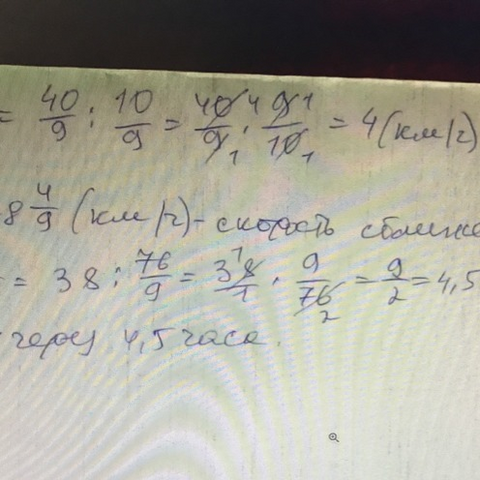 = 40/9 : 10/9 = 40 4/9 1 · 9 1/10 1 = 4 (км/ч)
8 4/9 (км/ч) - скорость сближе
= 38 : 76/9 = 38 1/1 · 9/76 2 = 9/2 = 4,5
через 4,5 часа.